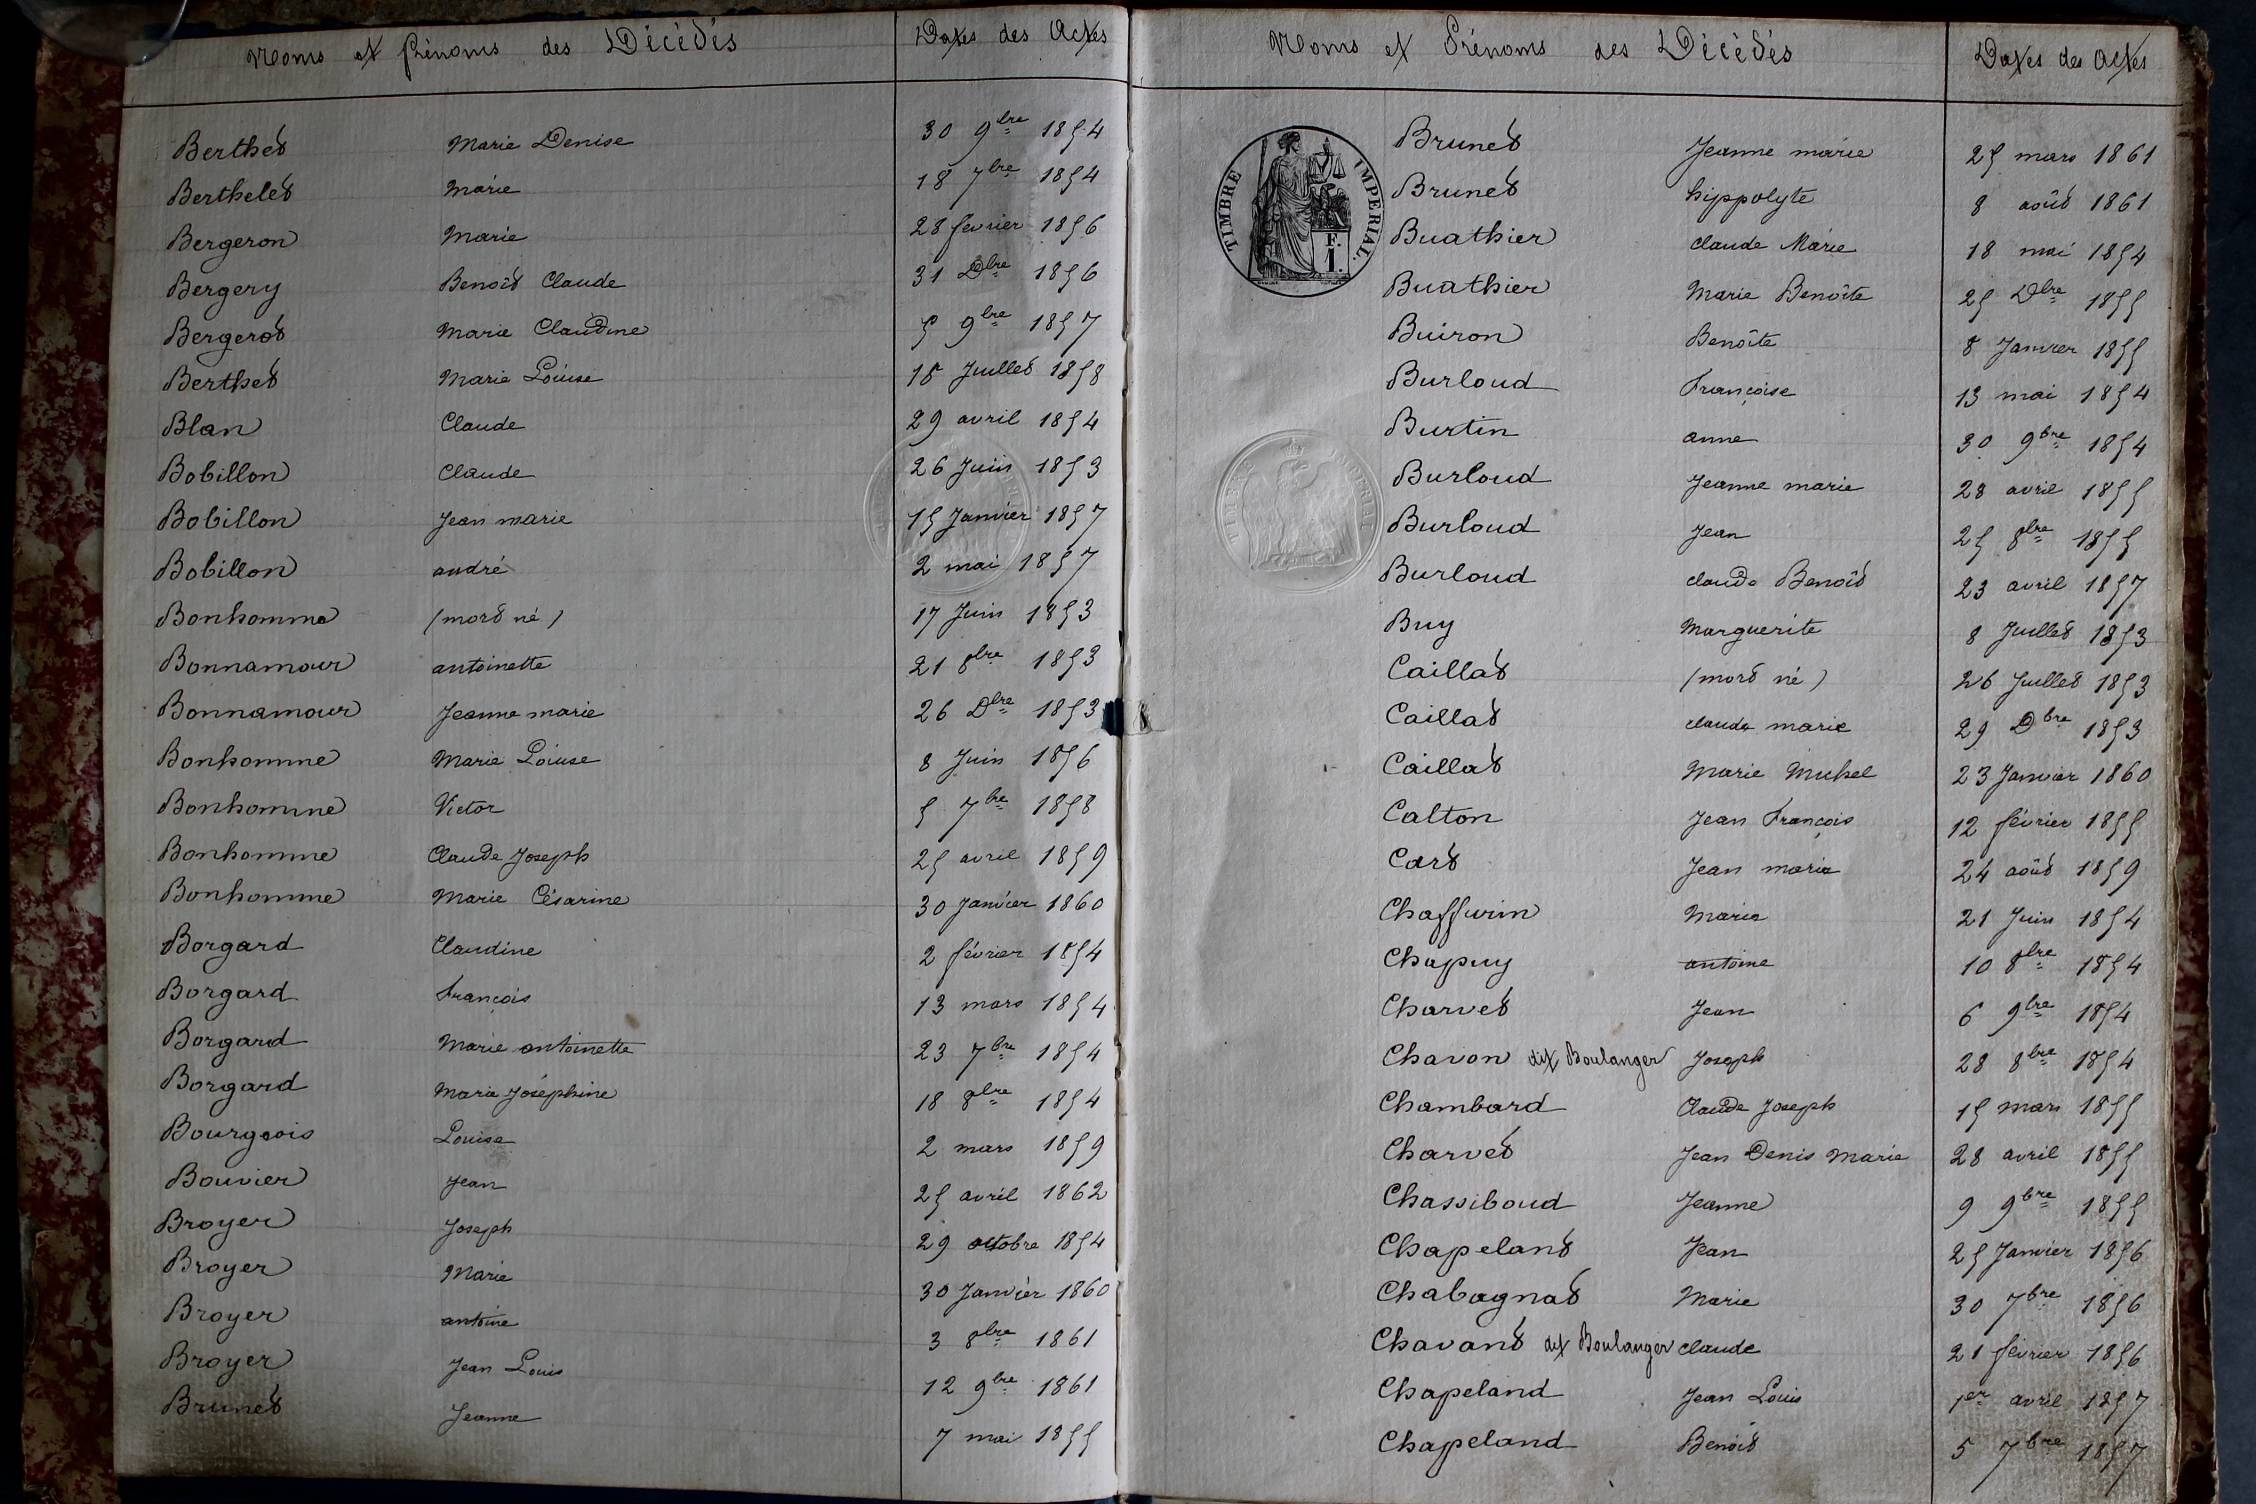 Noms et Prénoms des Décédés Dates des Actes
Berthet Marie Denise 30 9bre 1854
Berthelet Marie 18 7bre 1854
Bergeron Marie 28 fevrier 1856
Bergery Benoît Claude 31 Dbre 1856
Bergerot Marie Claudine 5 9bre 1857
Berthet Marie Louise 18 Juillet 1858
Blan Claude 29 avril 1854
Bobillon Claude 26 Juin 1853
Bobillon Jean marie 15 Janvier 1857
Bobillon andré 2 mai 1857
Bonhomme (mort né) 17 Juin 1853
Bonnamour antoinette 21 8bre 1853
Bonnamour Jeanne marie 26 Dbre 1853
Bonhomme Marie Louise 8 Juin 1856
Bonhomme Victor 5 7bre 1858
Bonhomme Claude Joseph 25 avril 1859
Bonhomme Marie Césarine 30 Janvier 1860
Borgard Claudine 2 février 1854
Borgard François 13 mars 1854
Borgard Marie antoinette 23 7bre 1854
Borgard Marie Joséphine 18 8bre 1854
Bourgeois Louise 2 mars 1859
Bouvier Jean 25 avril 1862
Broyer Joseph 29 octobre 1854
Broyer Marie 30 Janvier 1860
Broyer antoine 3 8bre 1861
Broyer Jean Louis 12 9bre 1861
Brunet Jeanne 7 mai 1855
Noms et Prénoms des Décédés Dates des Actes
TIMBRE IMPERIAL.
F.
1.
Brunet Jeanne marie 25 mars 1861
Brunet hippolyte 8 août 1861
Buathier claude Marie 18 mai 1854
Buathier Marie Benoîte 25 Dbre 1855
Buiron Benoîte 8 Janvier 1855
Burloud Françoise 13 mai 1854
Burtin anne 30 9bre 1854
Burloud Jeanne marie 28 avril 1855
Burloud Jean 25 8bre 1855
Burloud claude Benoît 23 avril 1857
Buy Marguerite 8 Juillet 1853
Caillat (mort né) 26 Juillet 1853
Caillat claude marie 29 Dbre 1853
Caillat Marie Michel 23 Janvier 1860
Calton Jean François 12 février 1855
Cart Jean marie 24 août 1859
Chaffurin Marie 21 Juin 1854
Chapuy antoine 10 8bre 1854
Charvet Jean 6 9bre 1854
Chavon dit Boulanger Joseph 28 8bre 1854
Chambard Claude Joseph 15 mars 1855
Charvet Jean Denis Marie 28 avril 1855
Chassiboud Jeanne 9 9bre 1855
Chapelant Jean 25 Janvier 1856
Chabagnat Marie 30 7bre 1856
Chavant dit Boulanger claude 21 février 1856
Chapeland Jean Louis 1er avril 1857
Chapeland Benoit 5 7bre 1857